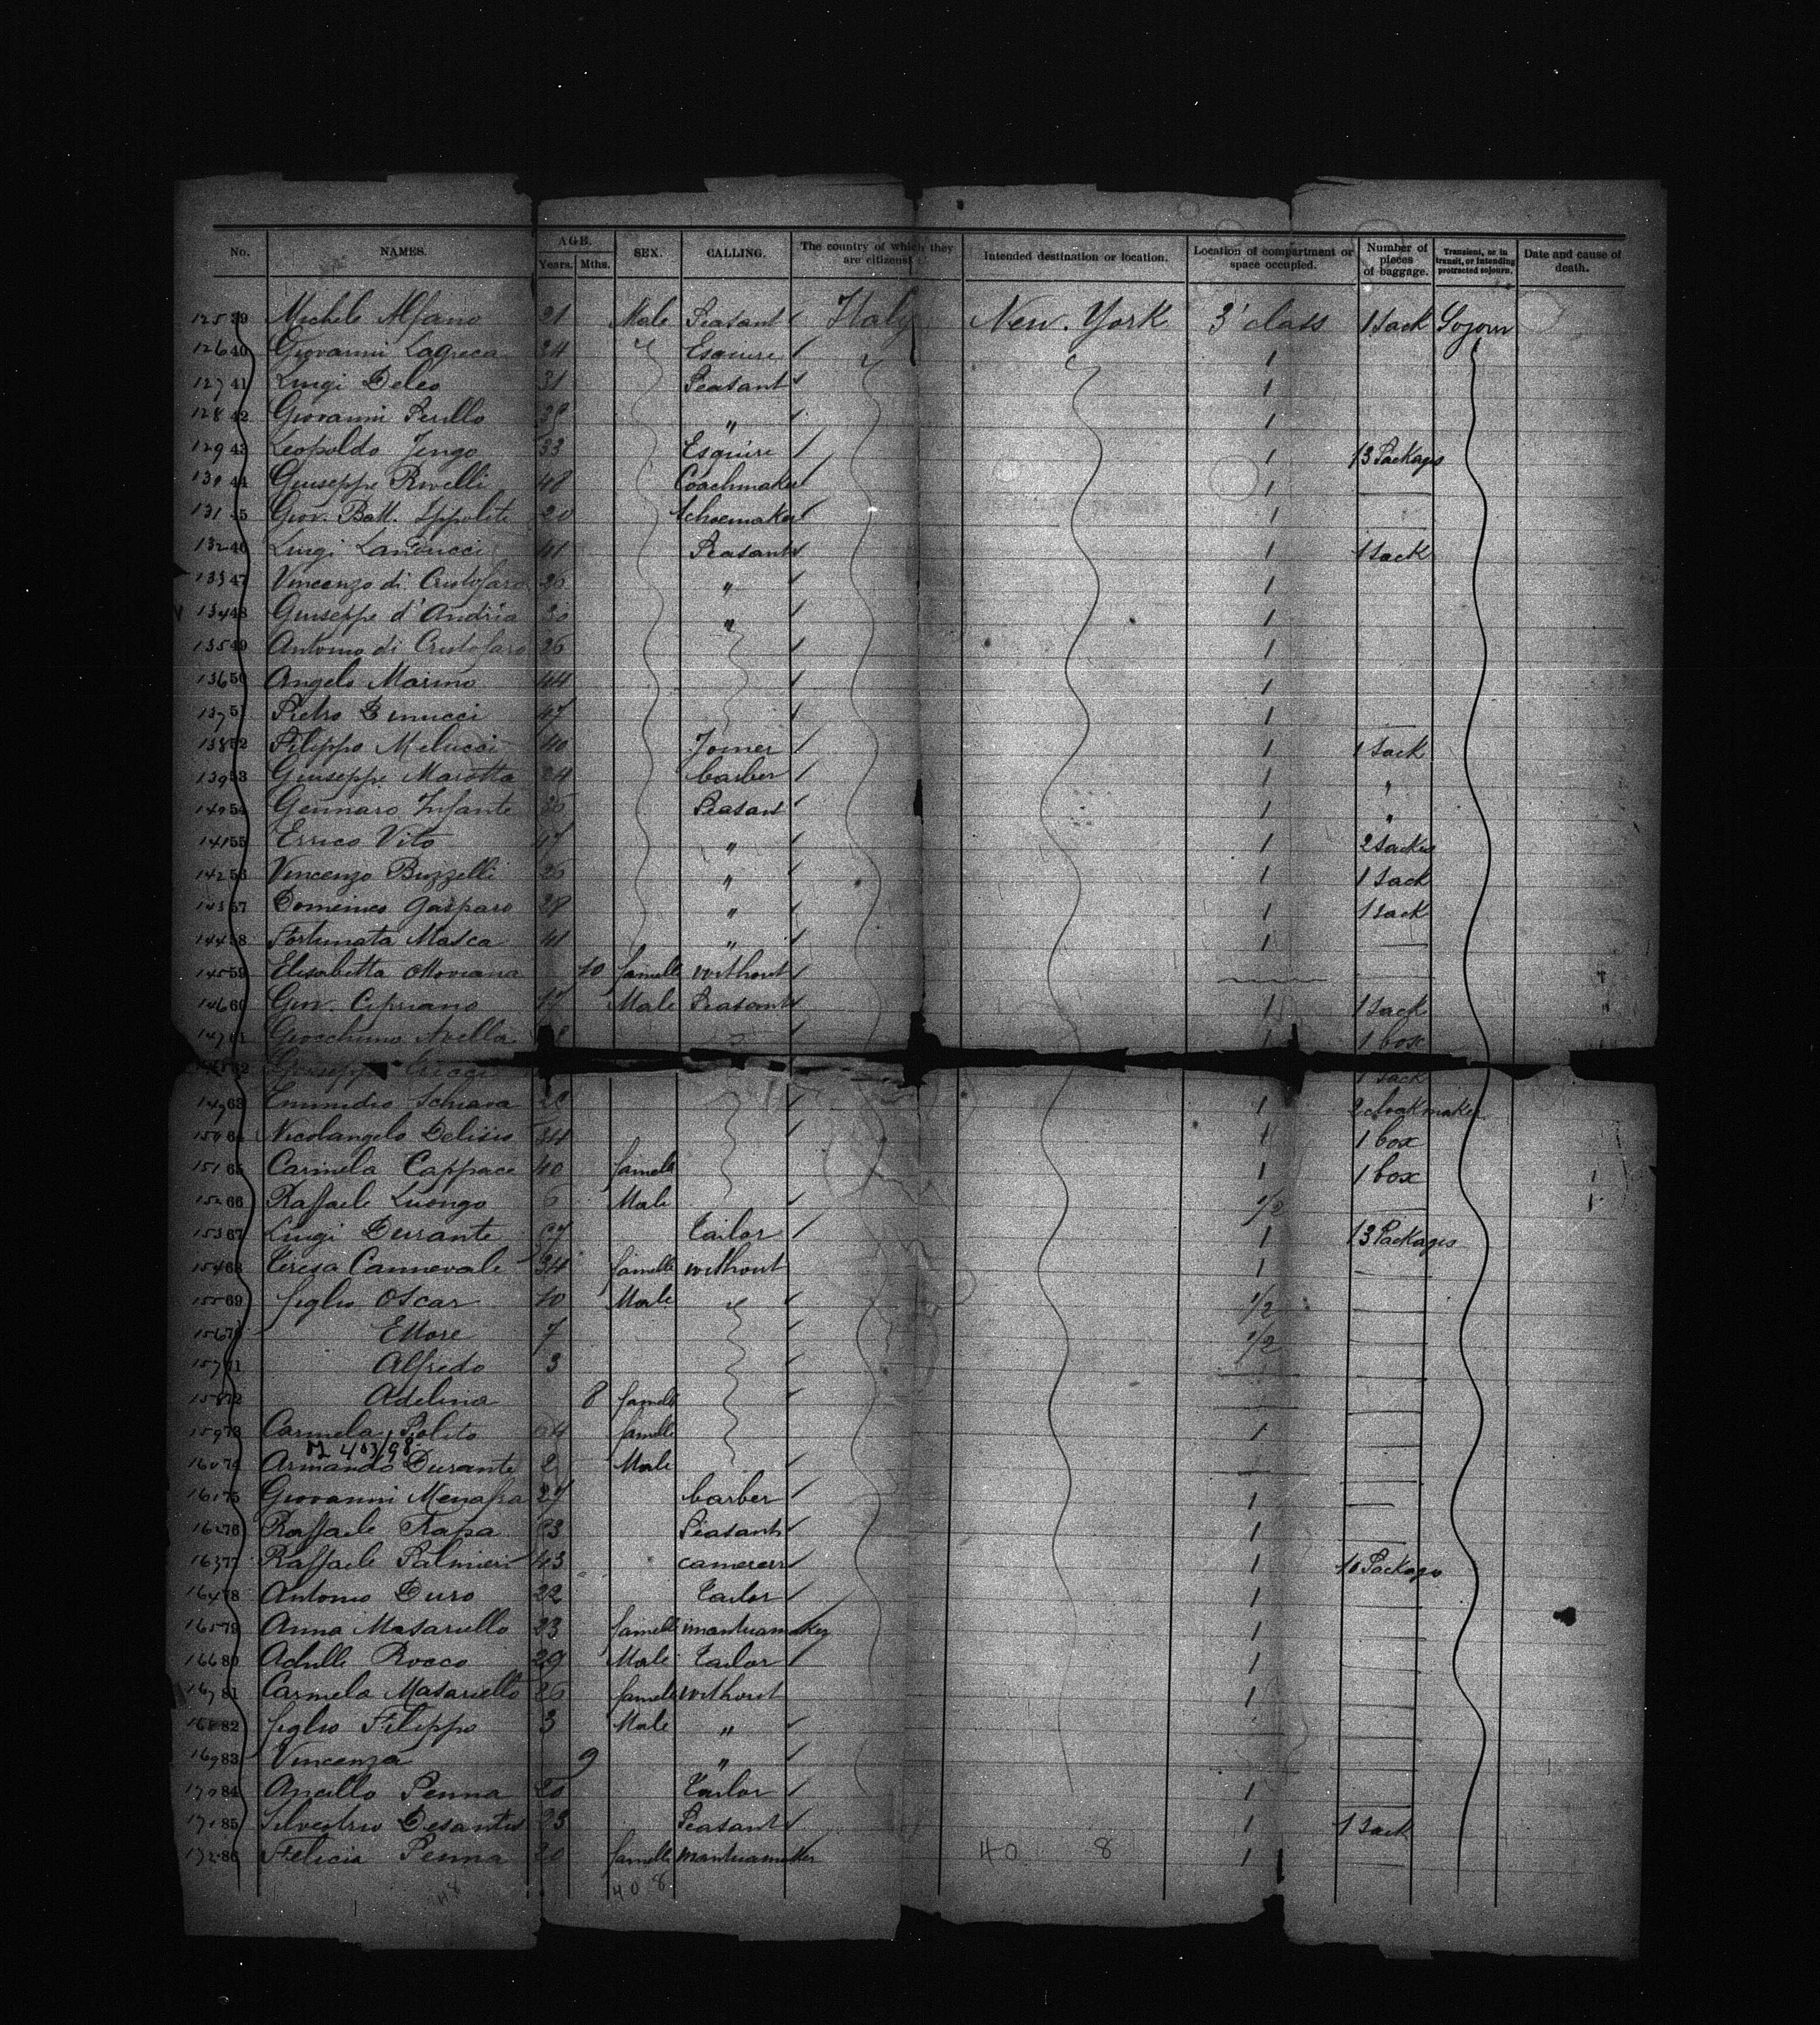 No. NAMES. AGE. Years. Mths. SEX. CALLING. The country of which they are citizens. Intended destination or location. Location of compartment or space occupied. Number of pieces of baggage. Transient, or in transit, or intending protracted sojourn. Date and cause of death.
125 39 Michele Alfano 21 Male Peasant Italy New. York 3' class 1 Sack Sojorn
126 40 Giovanni Lagreca 34 Esquire 1
127 41 Luigi Deleo 31 Peasant 1
128 42 Giovanni Perillo " 1
129 43 Leopoldo Jengo 33 Esquire 1 13 Packages
130 44 Giuseppe Rivelli 48 Coachmaker 1
131 45 Giov. Batt. Ippolito 20 Schoemaker 1
132 46 Luigi 41 Peasant 1 1 Sack
133 47 Vincenzo di Cristofaro 26 " 1
134 48 Giuseppe d'Andria 30 " 1
135 49 Antonio di Cristofaro 26 1
136 50 Angelo Marino 44 1
137 51 Pietro 47 1
138 52 Filippo Melucci 40 Joiner 1 1 Sack
139 53 Giuseppe Marotta 24 barber 1 "
140 54 Gennaro Infante 36 Peasant 1 "
141 55 Errico Vito 47 " 1 2 Sackes
142 56 Vincenzo Buzzelli 26 " 1 1 Sack
143 57 Domenico Gasparo 28 " 1 1 sack
144 58 Fortunata Masca 41 " 1
145 59 Elisabetta 10 famelle without
146 60 Giov. Cipriano 17 Male Peasant 1 1 Sack
147 61 Giocchino Avella 1 1 box
Giuseppe 1 Sack
149 63 Emmidio Schiava 20 1 2 cloakmaker
150 64 Nicolangelo Delisio 34 1 1 box
151 65 Carmela Cappace 40 famele 1 1 box
152 66 Raffaele Luongo 6 Male 1/2
153 67 Luigi Durante Tailor 1 13 Packages
154 68 Teresa Cannevale 34 famelle without 1
155 69 figlio Oscar 10 Male 1/2
156 70 Ettore 7 1/2
157 71 Alfredo 3
158 72 Adelina 8 famelle
159 73 Carmela Polito famelle 1
403/98
160 74 Armando Durante 2 Male
161 75 Giovanni Menafra 27 barber 1
162 76 Raffaele Trapa Peasant 1
163 77 Raffaele Palmieri 43 camererr 1 10 Packages
164 78 Antonio Duro 22 Tailor 1
165 79 Anna Masariello 23 famelle mantuamaker 1
166 80 Achille Rocco 29 Male Tailor 1
167 81 Carmela Masariello 26 famele without 1
168 82 figlio Filippo 3 Male "
169 83 Vincenza 9 "
170 84 Aniello Penna 20 Tailor 1
171 85 Silvestrio Desantis 23 Peasant 1 1 Sack
172 86 Felicia Penna 20 famelle mantuamaker 40 8 1
40 8